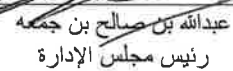 عبدالله بن صالح بن جمعه
رئيس مجلس الإدارة